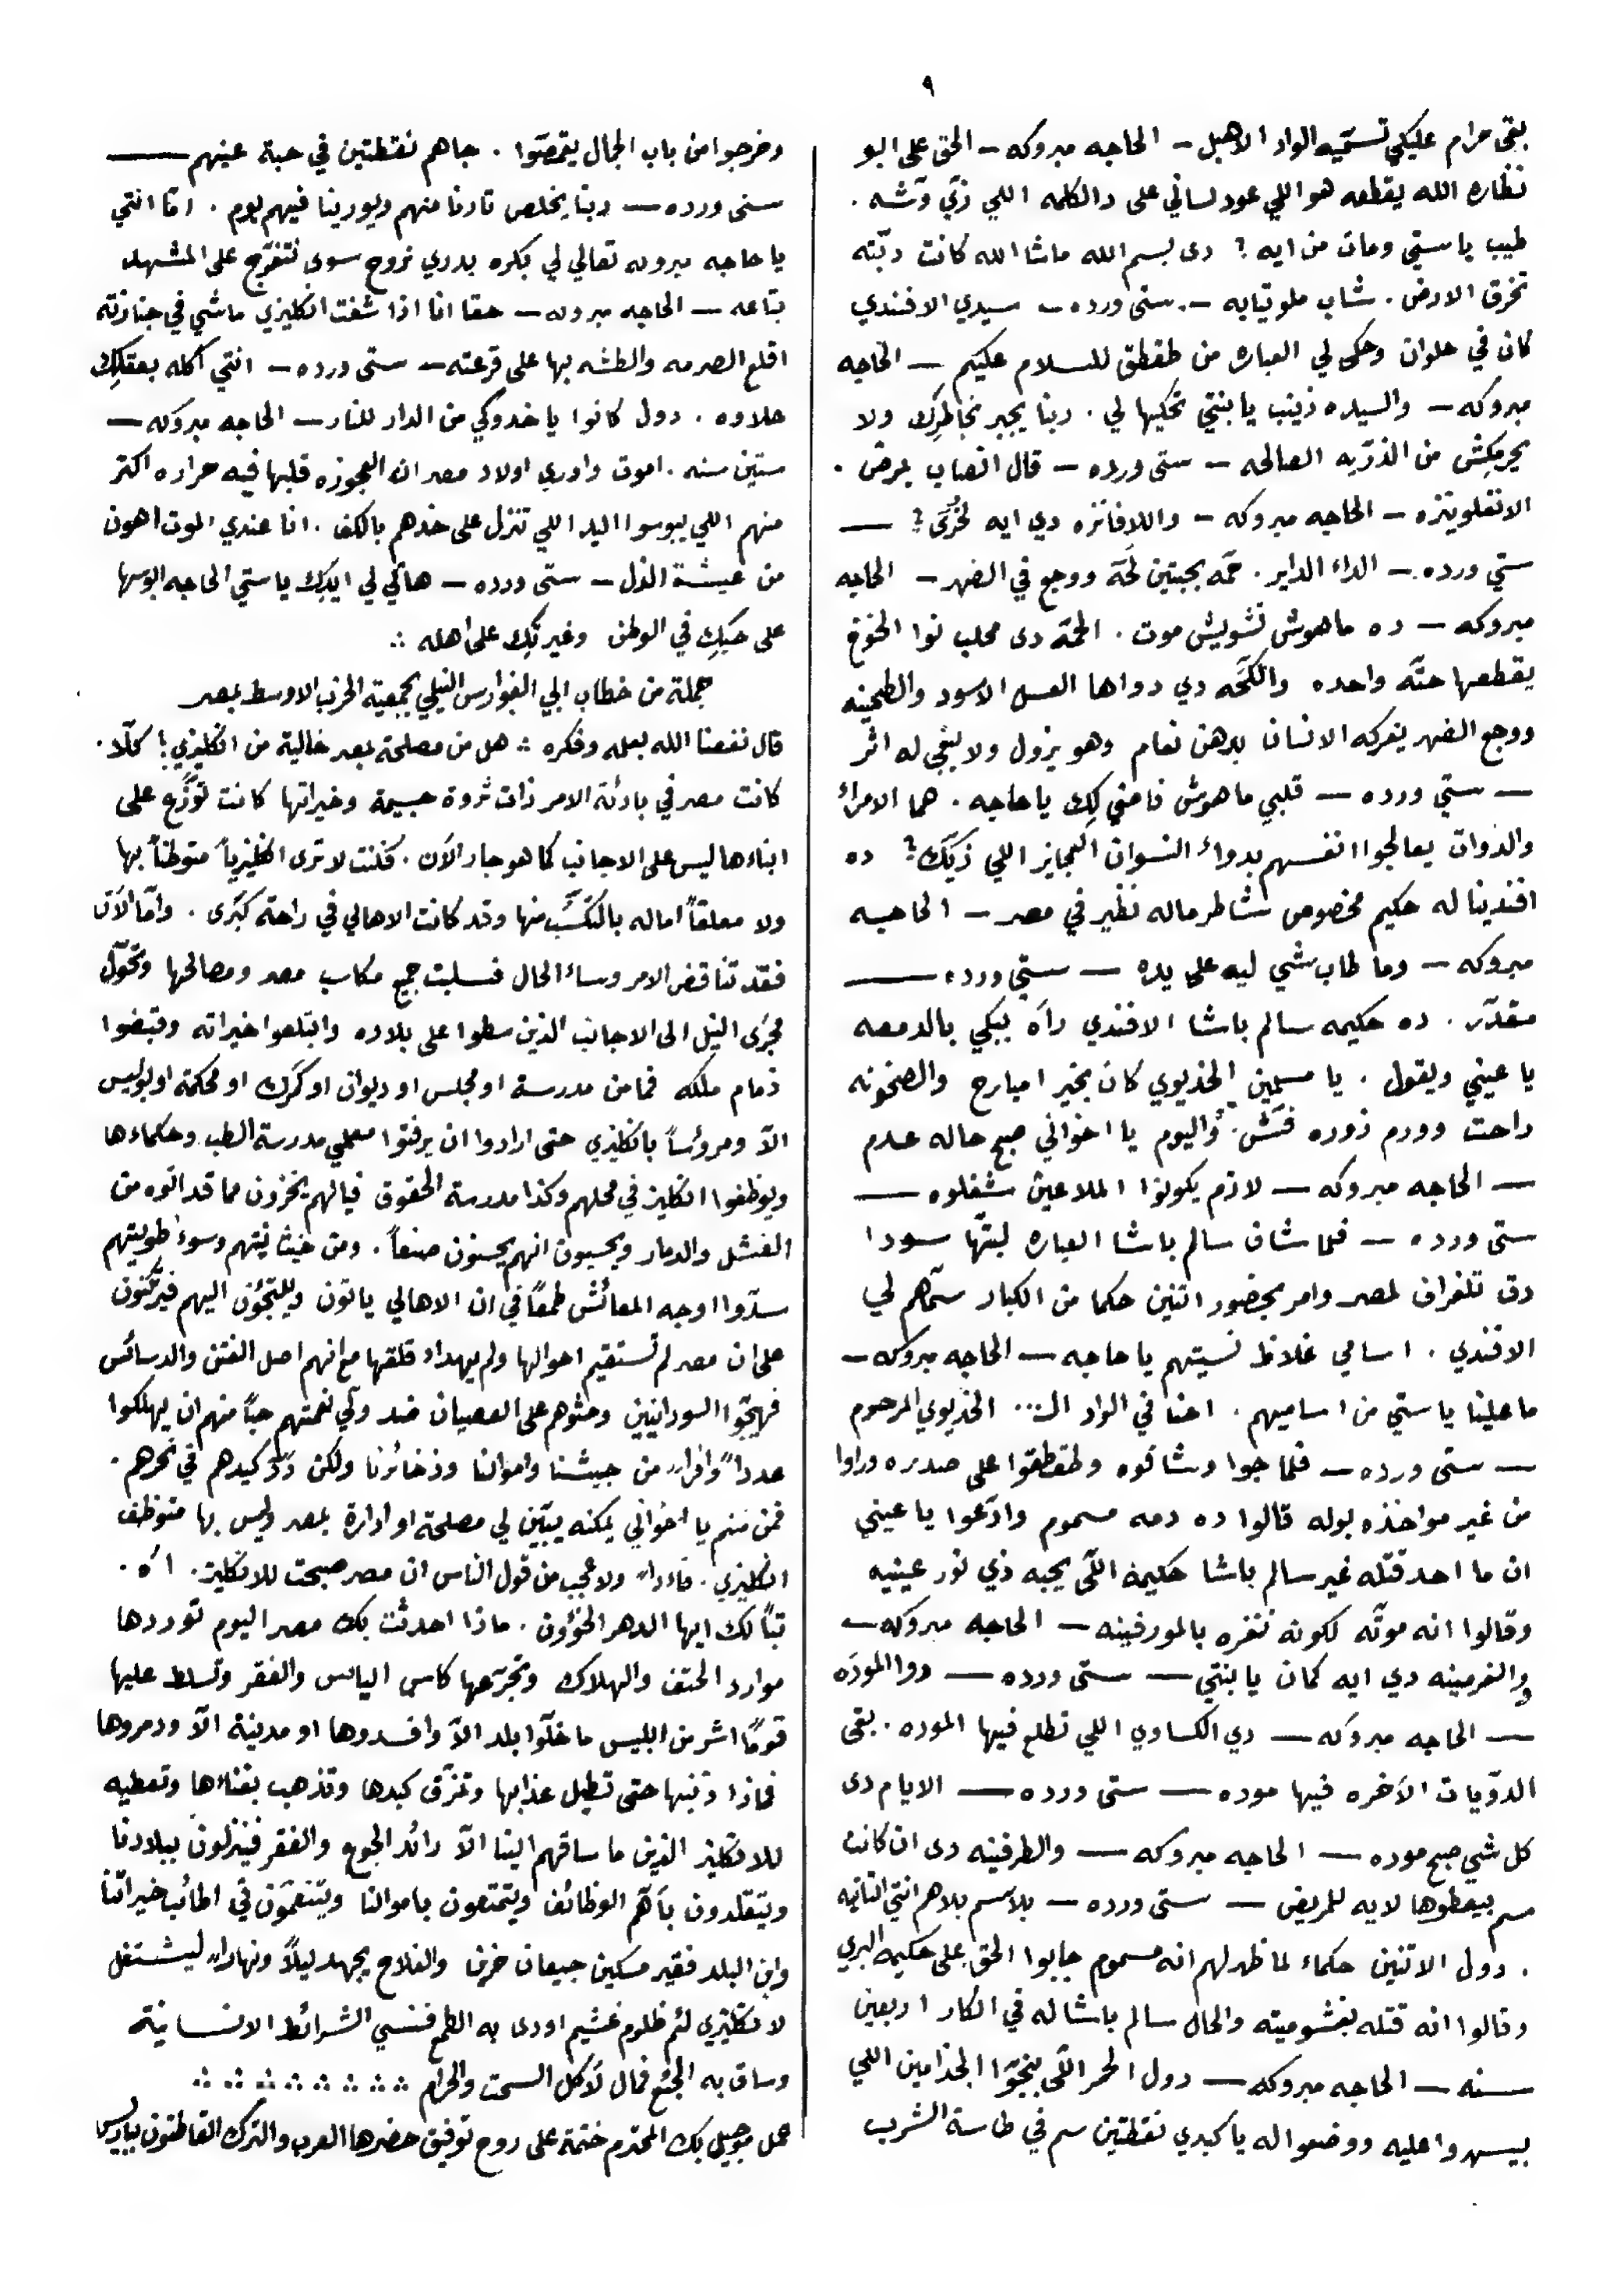 ٩
بقى حرام عليكي تسميه الواد الاهبل — الحاجه مبروكه — الحق على ابو
نظاره الله يقطعه هو اللي عود لساني على دالكلمه اللي زي وشه .
طيب يا ستي ومات من ايه ؟ دى بسم الله ماشا الله كانت دبّته
تخرق الارض . شاب ملو تيابه — ستى ورده — سيدي الافندي
كان في حلوان وحكى لي العباره من طقطق للسلام عليكم — الحاجه
مبروكه — والسيده زينب يا بنتي تحكيها لي . ربنا يجبر بخاطرك ولا
يحرمكش من الذرّيه الصالحه — ستى ورده — قال انصاب بمرض .
الانفلوينزه — الحاجه مبروكه — واللافانزه دي ايه لخرى ؟ —
ستي ورده — الداء الداير . حمّه بجبتين لحّه ووجع في الضهر — الحاجه
مبروكه — ده ماهوش تشويش موت . الحمّه دى محلب نوا الخوخ
يقطعها حتّه واحده والكحّه دي دواها العسل الاسود والطحينه
ووجع الضهر يفركه الانسان بدهن نعام وهو يزول ولا يبقى له اثر
— ستي ورده — قلبي ماهوش فاضي لك يا حاجه . هما الامراء
والذوات يعالجوا انفسهم بدواء النسوان العجايز اللي زيّك ؟ ده
افندينا له حكيم مخصوص شاطر ماله نظير في مصر — الحاجه
مبروكه — وما طاب شي ليه على يده — ستي ورده —
مقدّر . ده حكيمه سالم باشا الافندي رآه يبكي بالدمعه
يا عيني ويقول . يا مسلمين الخديوي كان بخير امبارح والصخونه
راحت وورم زوره فش . واليوم يا اخواني صبح حاله عدم
— الحاجه مبروكه — لازم يكونوا الملاعين شغلوه —
ستى ورده — فلما شاف سالم باشا العباره لبتّها سودا
دق تلغراف لمصر وامر بحضور اتنين حكما من الكبار سمّاهم لي
الافندي . اسامي غلاظ نسيتهم يا حاجه — الحاجه مبروكه —
ما علينا يا ستي من اساميهم . احنا في الواد الـ... الخديوي المرحوم
— ستى ورده — فلما جوا وشافوه وطقطقوا على صدره وراوا
من غير مواخذه بوله قالوا ده دمه مسموم وادّعوا يا عيني
ان ما احد قتله غير سالم باشا حكيمه اللّى يحبه زي نور عينيه
وقالوا انه موّته لكونه نغزه بالمورفينه — الحاجه مبروكه —
والفرمينه دي ايه كمان يا بنتي — ستى ورده — دوا الموده
— الحاجه مبروكه — دي الكساوي اللي تطلع فيها الموده . بقى
الدوّيات الاخره فيها موده — ستى ورده — الايام دى
كل شي صبح موده — الحاجه مبروكه — والطرفينه دى ان كانت
سم بيعطوها لايه للمريض — ستى ورده — بلاسم بلاهم انتي التانيه
. دول الاتنين حكماء لما ظهر لهم انه مسموم جابوا الحق على حكيمه البري
وقالوا انه قتله بغشوميته والحال سالم باشا له في الكار اربعين
سنه — الحاجه مبروكه — دول الحمر اللّى بنجوّا الجذامين اللي
بيسهروا عليه ووضعوا له يا كبدي نقطتين سم في طاسة الشرب
وخرجوا من باب الجمال يقمصّوا . جاهم نقطتين في حبة عينهم —
ستى ورده — ربنا يخلص تارنا منهم ويورينا فيهم يوم . امّا انتي
يا حاجه مبروكه تعالي لي بكره بدري نروح سوى نتفرّج على المشهد
بتاعه — الحاجه مبروكه — حقا انا اذا شفت انكليزي ماشي في جنازته
اقلع الصرمه والطشه بها على قرعته — ستى ورده — انتي اكله بعقلك
حلاوه . دول كانوا ياخدوكي من الدار للنار — الحاجه مبروكه —
ستين سنه . اموت واوري اولاد مصر ان العجوزه قلبها فيه حراره اكتر
منهم اللي يبوسوا اليد اللي تنزل على خدهم بالكف . انا عندي الموت اهون
من عيشة الذل — ستى ورده — هاتي لي ايدك يا ستي الحاجه ابوسها
على حبّك في الوطن وغيرتك على اهله ∴
جملة من خطاب ابي الفوارس النيلي بجمعية الحزب الاوسط بمصر
قال نفعنا الله بعلمه وفكره ∴ هل من مصلحة بمصر خالية من انكليزي ؛ كلّا .
كانت مصر في بادئة الامر ذات ثروة جسيمة وخيراتها كانت توزّع على
ابناءها ليس على الاجانب كما هو جار الآن . فكنت لا ترى انكليزياً متوطناً بها
ولا معلقاً اماله بالتكسّب منها وقد كانت الاهالي في راحة كبرى . وامّا الآن
فقد تناقض الامر وساء الحال فسلبت جميع مكاسب مصر ومصالحها وتحوّل
مجرى النيل الى الاجانب الذين سطوا على بلاده وابتلعوا خيراته وقبضوا
زمام ملكه فما من مدرسة او مجلس او ديوان او كمرك او محكمة او بوليس
الاّ ومرؤساً بانكليزي حتى ارادوا ان يرفتوا معلمي مدرسة الطب وحكماءها
ويوظفوا انكليز في محلهم وكذا مدرسة الحقوق فيالهم يخزون مما قد اتوه من
الفشل والدمار ويحسبون انهم يحسنون صنعاً . ومن خبث نيّتهم وسوء طويتهم
سدّوا اوجه المعائش طمعاً في ان الاهالي ياتون ويلتجؤن اليهم فيبرّهنون
على ان مصر لم تستقيم احوالها ولم يهداء قلقها مع انهم اصل الفتن والدسائس
فهيّجوا السودانيين وحثوهم على العصيان ضد ولّي نعمتهم حبّاً منهم ان يهلكوا
عدداً وافراً من جيشنا واموالنا وذخائرنا ولكن ردّ كيدهم في نحرهم .
فمن منم يا اخواني يمكنه يبيّن لي مصلحة او ادارة بمصر وليس بها متوظف
انكليزي . فاءذاً ولا عجب من قول الناس ان مصر صبحت للانكليز . اﻫ .
تبّاً لك ايها الدهر الخؤون . ماذا احدثت بك مصر اليوم توردها
موارد الحتف والهلاك وتجرّعها كاس الياس والفقر وتسلط عليها
قوماً اشر من ابليس ما خلّوا بلد الاّ وافسدوها او مدينة الاّ ودمروها
فماذا ذنبها حتى تطيل عذابها وتمزّق كبدها وتذهب بغناءها وتعطيه
للانكليز الذين ما ساقهم الينا الاّ رائد الجوع والفقر فينزلون ببلادنا
ويتقلدون بآهّم الوظائف ويتمتعون باموالنا ويتنعّمون في اطائب خيراتنا
وابن البلد فقير مسكين جيعان حزين والفلاح يجهد ليلاً ونهاراً ليشتغل
لانكليزي لئم ظلوم غشيم اودى به الطمع فنسي الشرائط الانسانية
وساق به الجشع فمال لأكل السحت والحرام ∴ ∴ ∴ ∴ ∴ ∴ ∴ ∴
عمل موجيلي بك المحترم ختمة على روح توفيق حضرها العرب والترك القاطنون بباريس